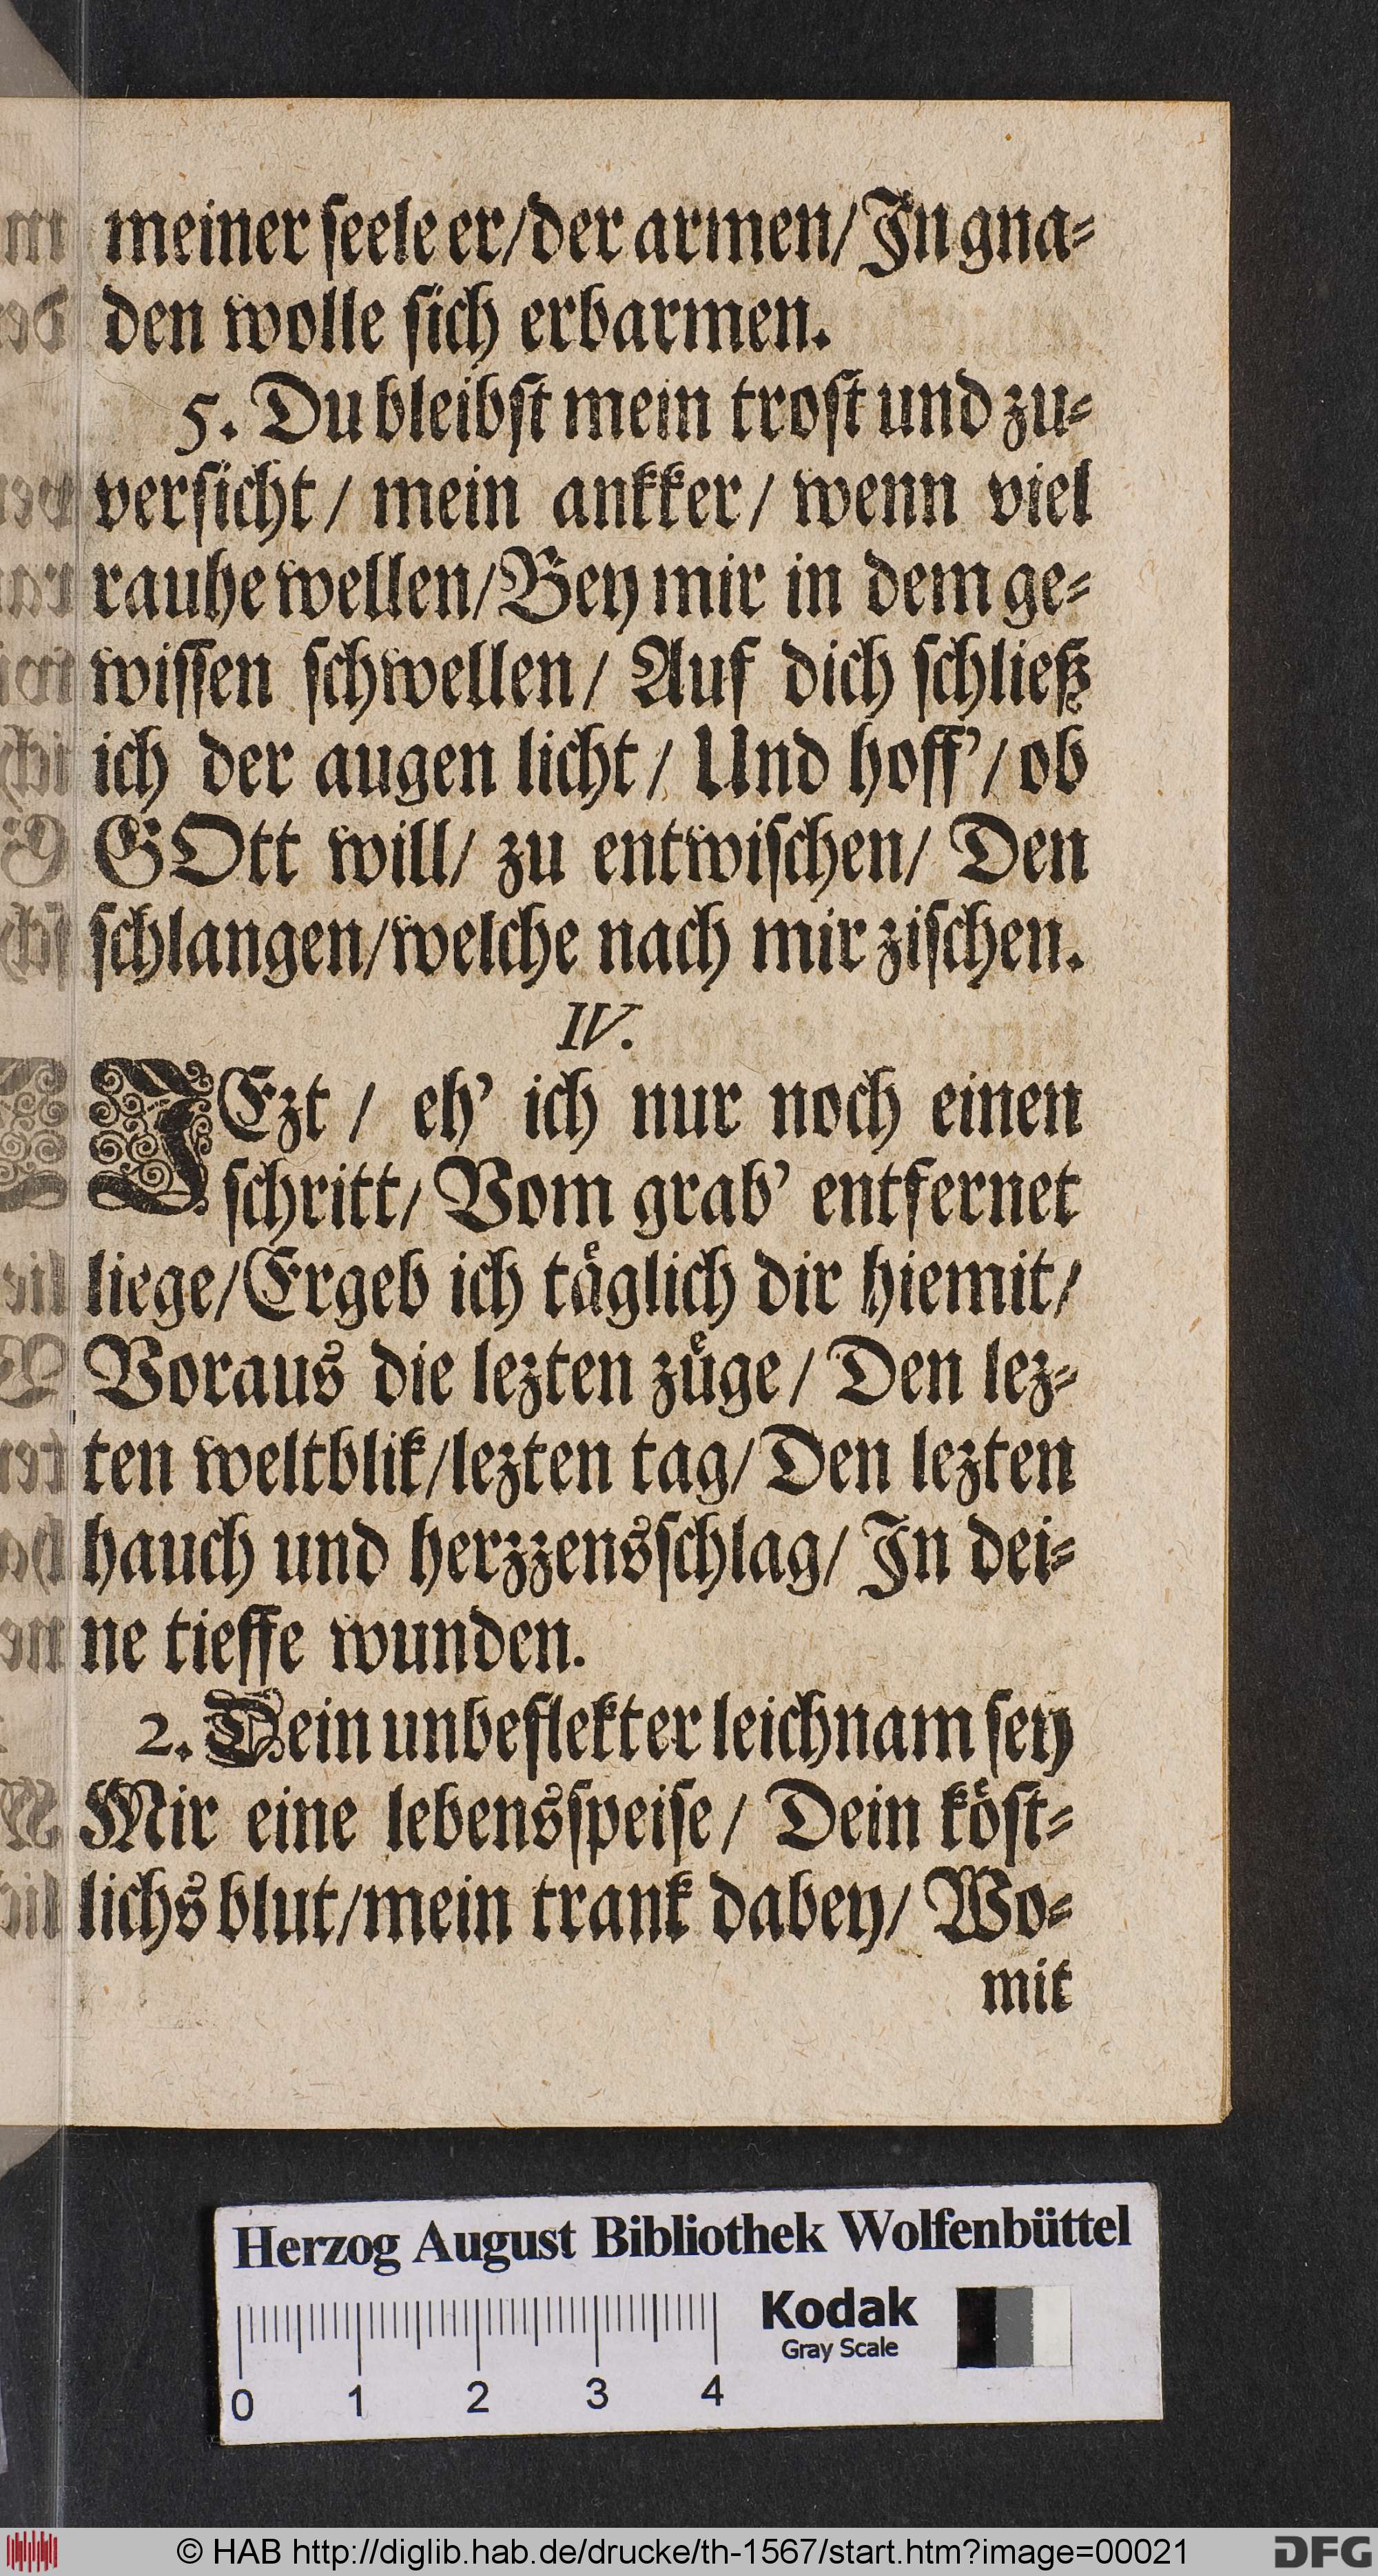 meiner ſeele er/der armen/ In gna⸗
den wolle ſich erbarmen.
5. Du bleibſt mein troſt und zu⸗
verſicht / mein ankker/ wenn viel
rauhe wellen/Bey mir in dem ge⸗
wiſſen ſchwellen/ Auf dich ſchließ
ich der augen licht / Und hoff’/ ob
GOtt will/ zu entwiſchen/ Den
ſchlangen/welche nach mir ziſchen.
IV.
JEzt / eh’ ich nur noch einen
ſchritt/ Vom grab’ entfernet
liege/Ergeb ich taͤglich dir hiemit/
Voraus die lezten zuͤge / Den lez⸗
ten weltblik/lezten tag/ Den lezten
hauch und herzzensſchlag/ In dei⸗
ne tieffe wunden.
2. Dein unbeflekter leichnam ſey
Mir eine lebensſpeiſe/ Dein koͤſt⸗
lichs blut/mein trank dabey/ Wo⸗
mit
Herzog August Bibliothek Wolfenbüttel
Kodak
Gray Scale
0 1 2 3 4
© HAB http://diglib.hab.de/drucke/th-1567/start.htm?image=00021
DFG